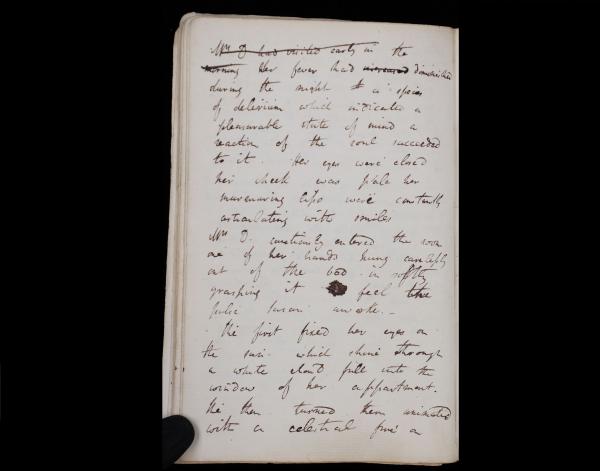 Mrs D had visited early in the
morning Her fever had increased diminished
during the night & a species
of delerium which indicated a
pleasurable state of mind a
reaction of the soul succeeded
to it. Her eyes were closed
her cheek was pale her
murmuring lips were constantly
articulating with smiles
Mrs D. cautiously entered the room
one of her hands hung carelessly
out of the bed - in softly
grasping it feel the
pulse Susan awoke. -
She first fixed her eyes on
the sun which shone through
a white cloud full into the
window of her appartment.
She then turned them animated
with a celestial fire on